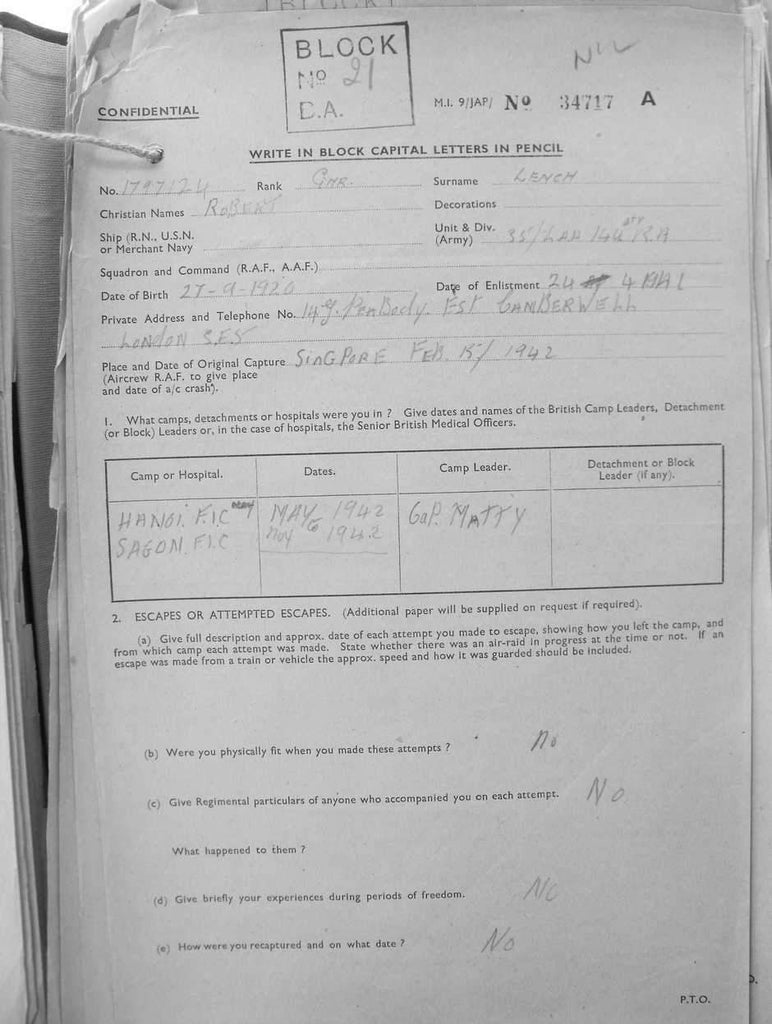 BLOCK
No 21
E.A.
NIL
CONFIDENTIAL
M.I. 9/JAP/ No 34717 A
WRITE IN BLOCK CAPITAL LETTERS IN PENCIL
No. 1797124 Rank GNR. Surname LENCH
Christian Names ROBERT Decorations
Ship (R.N., U.S.N. or Merchant Navy
Unit & Div. (Army) 35/LAA 144 BTY R.A
Squadron and Command (R.A.F., A.A.F.)
Date of Birth 27-9-1920 Date of Enlistment 24 4 1941
Private Address and Telephone No. Peabody. EST CAMBERWELL
LONDON S.E.5
Place and Date of Original Capture SINGPORE FEB. 15/ 1942
(Aircrew R.A.F. to give place
and date of a/c crash).
1. What camps, detachments or hospitals were you in ? Give dates and names of the British Camp Leaders, Detachment
(or Block) Leaders or, in the case of hospitals, the Senior British Medical Officers.
Camp or Hospital. Dates. Camp Leader. Detachment or Block
Leader (if any).
HANOI. F.I.C MAY 1942 CaP. MATTY
SAGON. F.I.C NOV 1942
to
2. ESCAPES OR ATTEMPTED ESCAPES. (Additional paper will be supplied on request if required).
(a) Give full description and approx. date of each attempt you made to escape, showing how you left the camp, and
from which camp each attempt was made. State whether there was an air-raid in progress at the time or not. If an
escape was made from a train or vehicle the approx. speed and how it was guarded should be included.
(b) Were you physically fit when you made these attempts ? No
(c) Give Regimental particulars of anyone who accompanied you on each attempt. No
What happened to them ?
(d) Give briefly your experiences during periods of freedom. No
(e) How were you recaptured and on what date ? No
P.T.O.